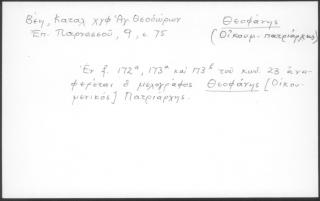 Βέη, Καταλ χγφ Αγ. Θεοδώρων
Επ. Παρνασσού, 9, σ. 75
Θεοφάνης
(Οἰκουμ. πατριάρχης)
Ἐν f. 172ᵃ, 173ᵃ καὶ 173ᵇ τοῦ κωδ. 23 ἀνα-
φέρεται ὁ μελογράφος Θεοφάνης [Οἰκου-
μενικὸς] Πατριάρχης.